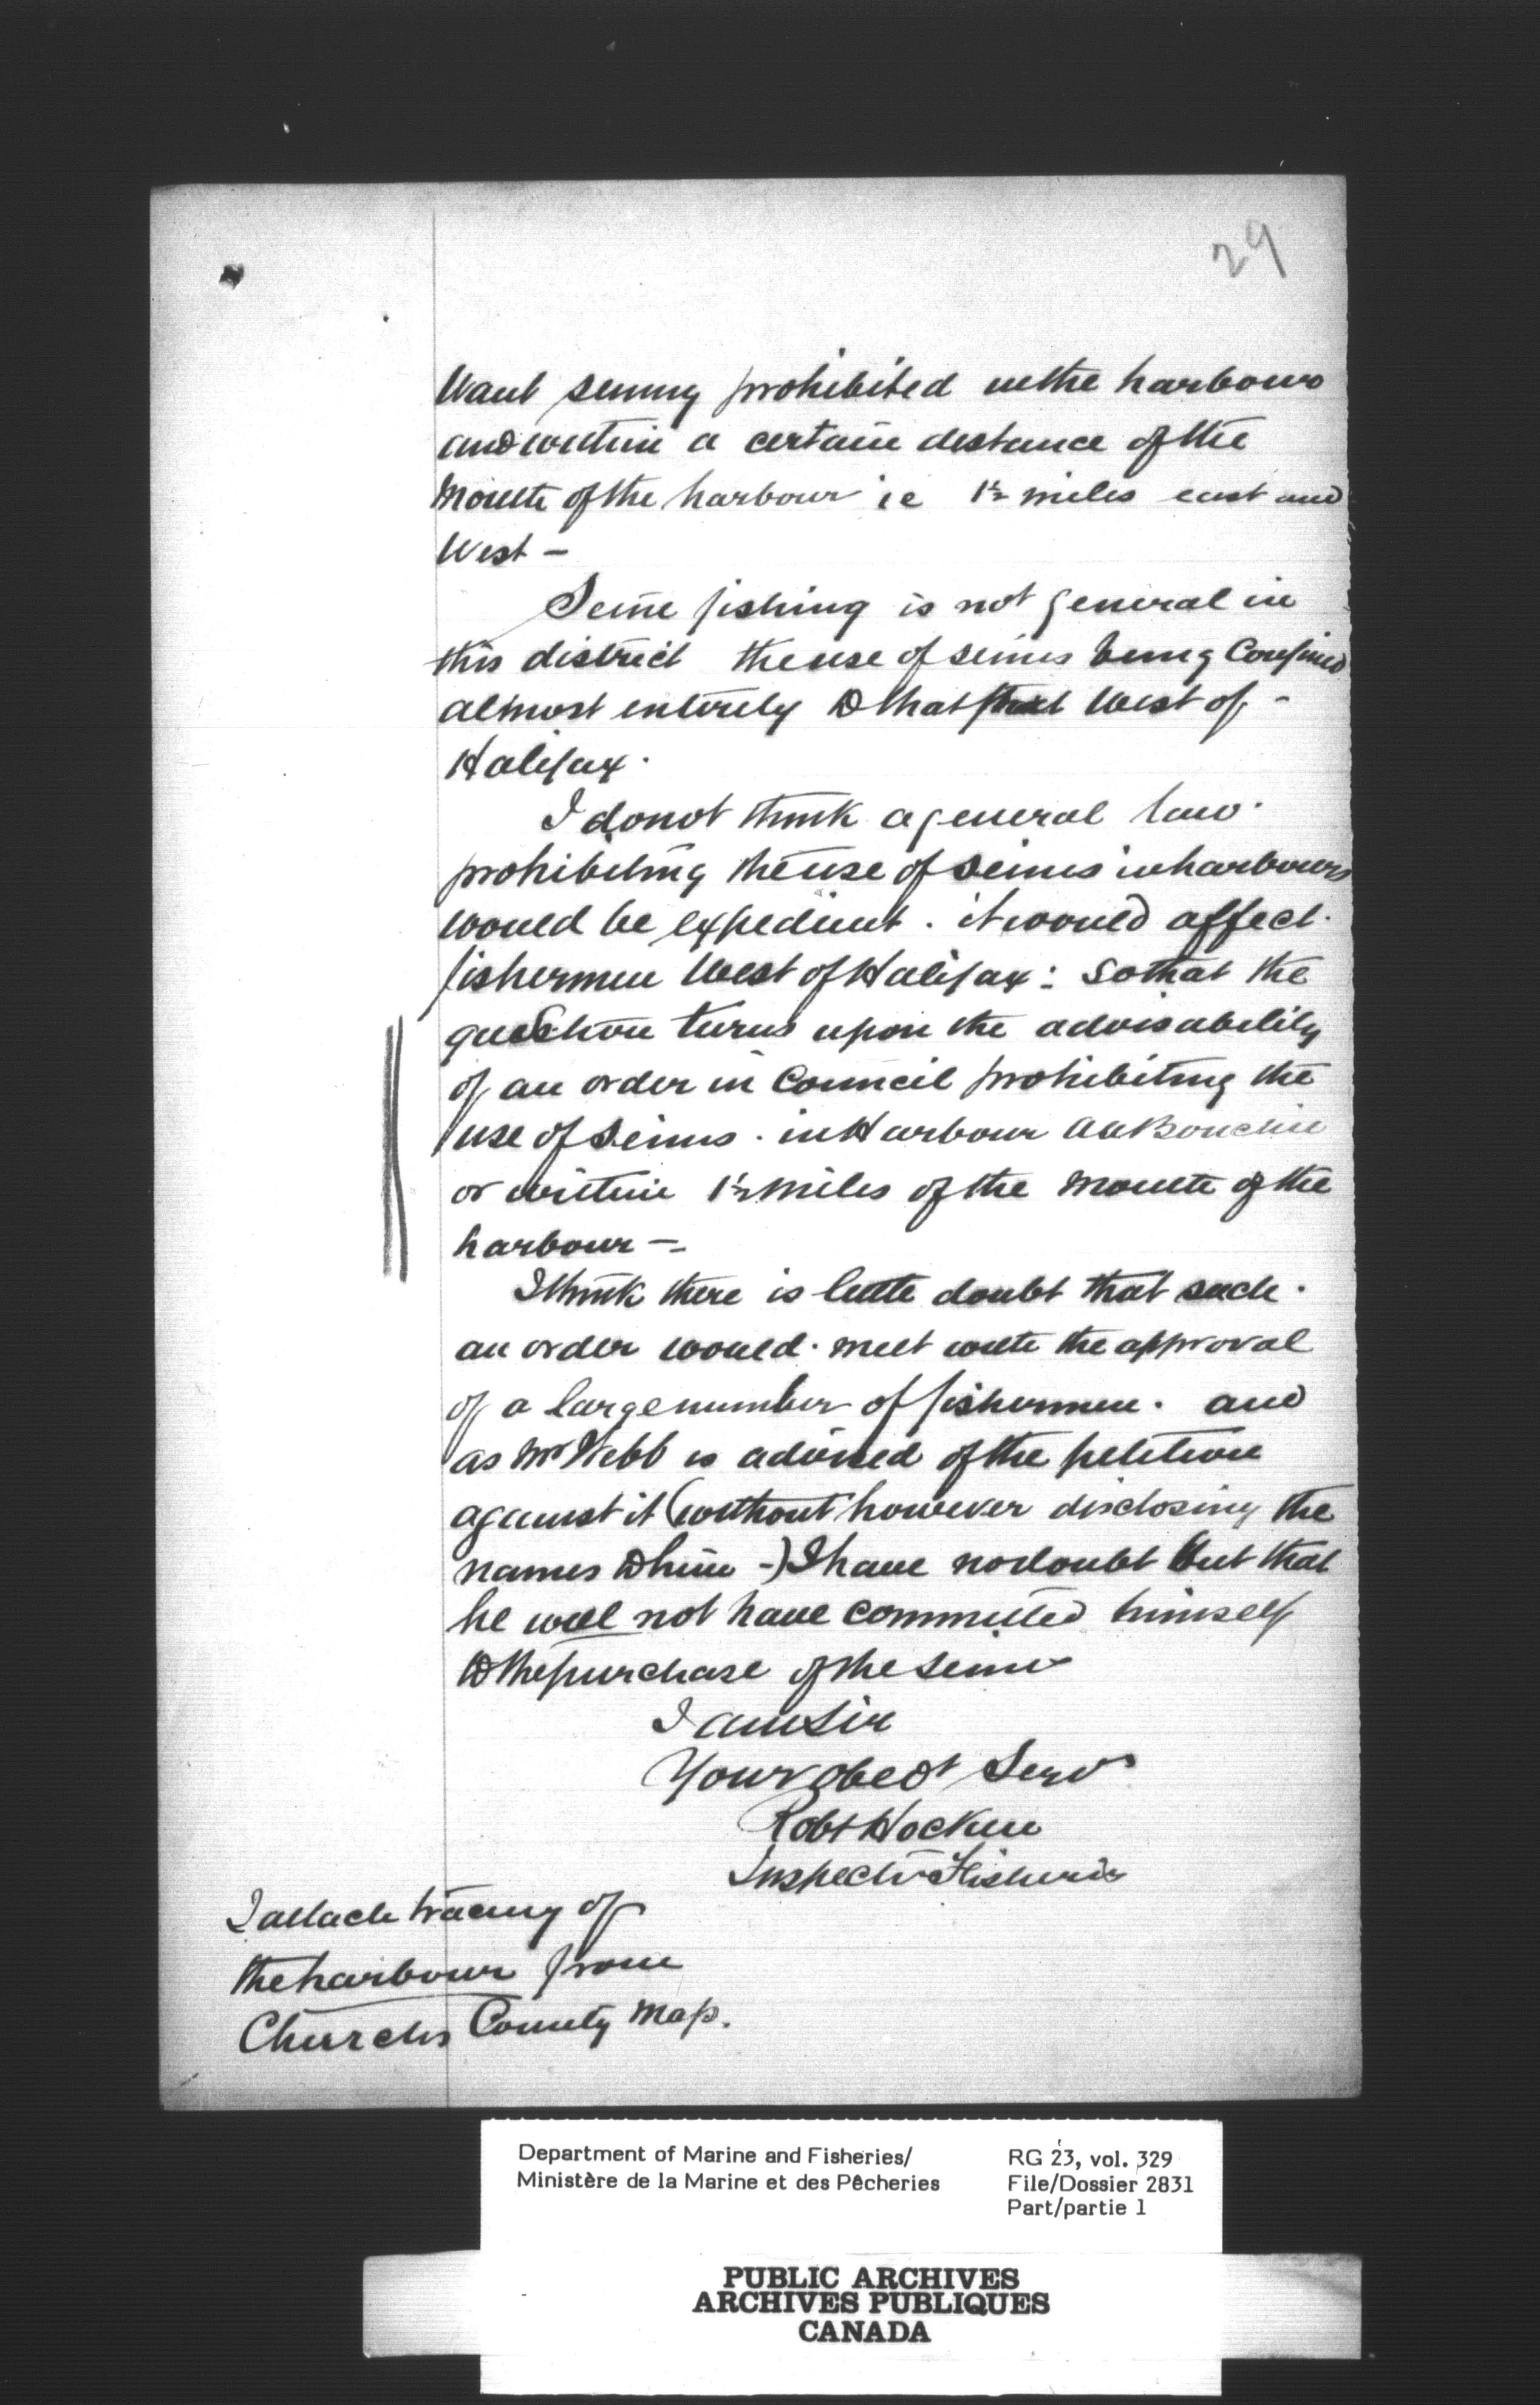 29
Want seining prohibited in the harbours
and within a certain distance of the
mouth of the harbour ie 1½ miles east and
West -
Seine fishing is not general in
this district the use of seines being Confined
almost entirely to that West of -
Halifax.
I do not think a general law
prohibiting the use of seines in harbours
would be expedient. it would affect
fishermen West of Halifax: so that the
question turns upon the advisability
of an order in Council prohibiting the
use of seines. in Harbour au Bouchie
or within 1½ miles of the mouth of the
harbour -
I think there is little doubt that such
an order would. meet with the approval
of a large number of fishermen. and
as Mr Webb is advised of the petition
against it (without however disclosing the
names to him -) I have no doubt but that
he will not have committed himself
to the purchase of the seine
I am Sir
Your obedt Servt
Robt Hockin
Inspector Fisheries
I attach tracing of
the harbour from
Churchs County Map.
Department of Marine and Fisheries/
Ministère de la Marine et des Pêcheries
RG 23, vol. 329
File/Dossier 2831
Part/partie 1
PUBLIC ARCHIVES
ARCHIVES PUBLIQUES
CANADA